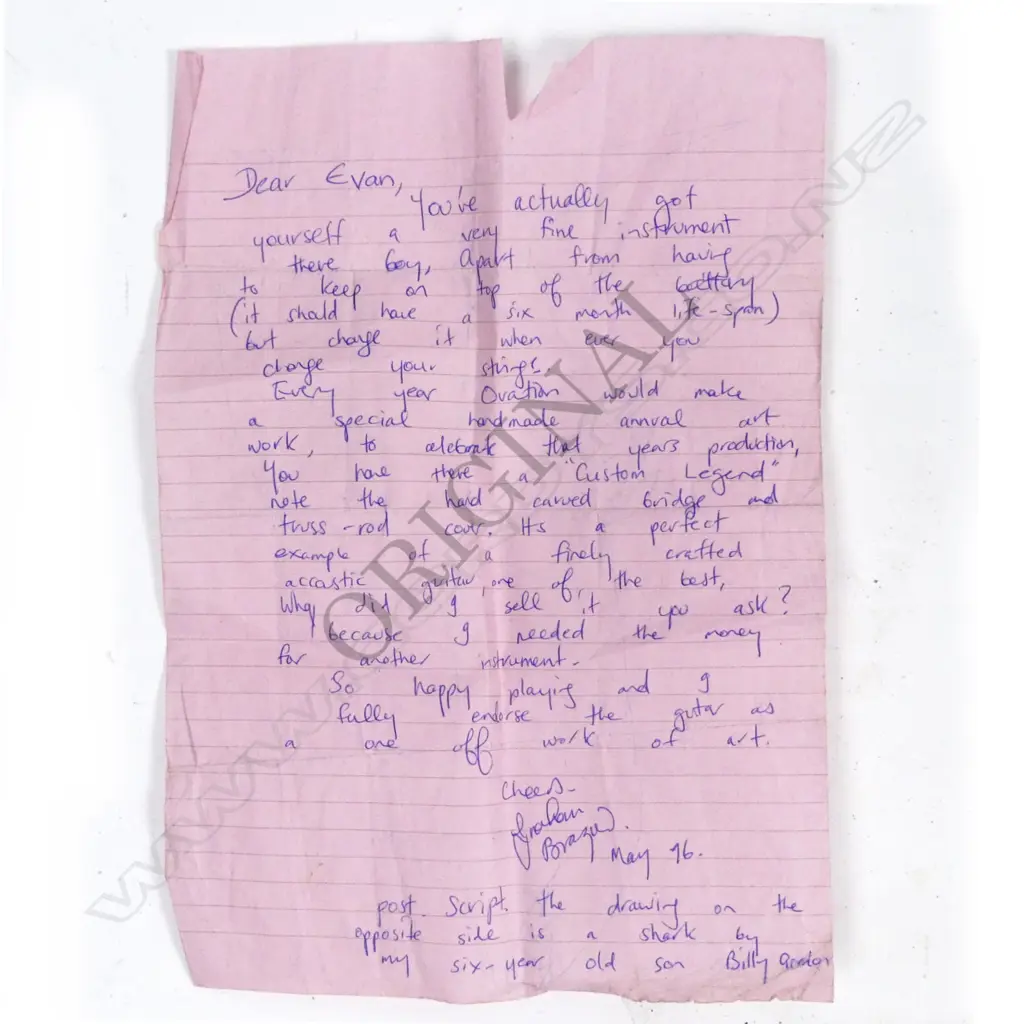 Dear Evan,
You've actually got
yourself a very fine instrument
there boy, Apart from having
to keep on top of the battery
(it should have a six month life-span)
but change it when ever you
change your strings.
Every year Ovation would make
a special handmade annual art
work, to celebrate that years production,
You have there a "Custom Legend"
note the hand carved bridge and
truss-rod cover. Its a perfect
example of a finely crafted
accastic guitar, one of the best,
Why did I sell it you ask?
because I needed the money
for another instrument-
So happy playing and I
fully endorse the guitar as
a one off work of art.
Cheers-
Graham
Brazier.
May 96.
post. Script. the drawing on the
opposite side is a shark by
my six-year old son Billy
ORIGINAL